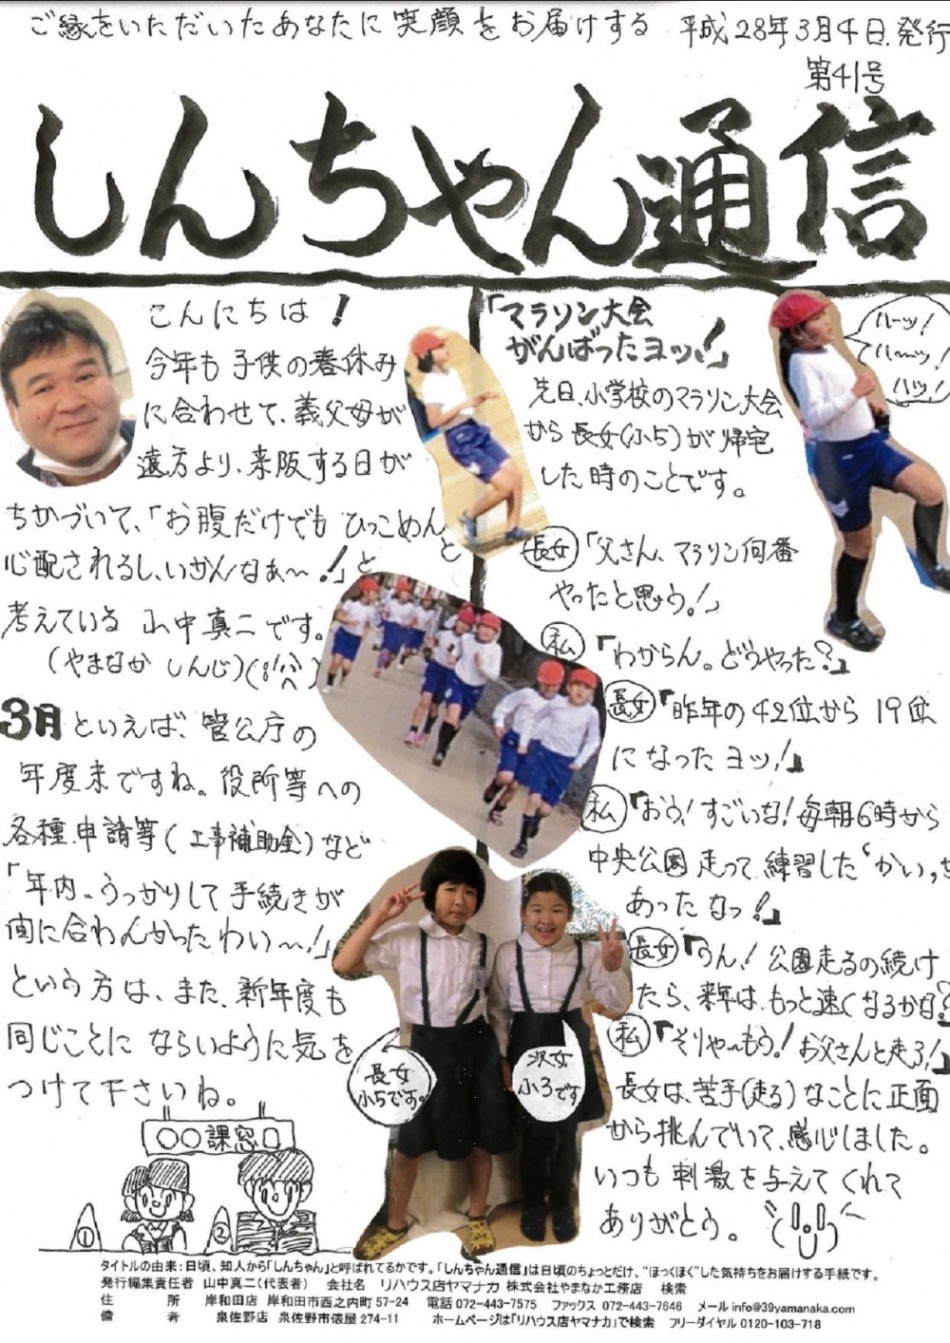 ご縁をいただいたあなたに笑顔をお届けする 平成28年3月4日発行
第41号
しんちゃん通信
こんにちは!
今年も子供の春休み
に合わせて、義父母が
遠方より、来阪する日が
ちかづいて、「お腹だけでもひっこめんと
心配されるし、いかんなぁ〜!」と
考えている 山中真二です。
(やまなか しんじ)
3月といえば、官公庁の
年度末ですね。役所等への
各種申請等(工事補助金)など
「年内、うっかりして手続きが
間に合わんかったわい〜!」
という方は、また、新年度も
同じことにならいように気を
つけて下さいね。
〇〇課窓口
①
②
「マラソン大会
がんばったヨッ!」
先日、小学校のマラソン大会
から長女(小5)が帰宅
した時のことです。
ハーッ!
ハーッ!
ハッ!
長女「父さん、マラソン何番
やったと思う!」
私「わからん。どうやった?」
長女「昨年の42位から19位
になったヨッ!」
私「おう!すごいな!毎朝6時から
中央公園走って練習した"かい"が
あったなっ!」
長女「うん!公園走るの続け
たら、来年は、もっと速くなるかな?
私「そりゃ〜もう!お父さんと走ろ!」
長女は、苦手(走る)なことに正面
から挑んでいて、感心しました。
いつも刺激を与えてくれて
ありがとう。
長女
小5です。
次女
小3です
タイトルの由来:日頃、知人から「しんちゃん」と呼ばれてるかです。「しんちゃん通信」は日頃のちょっとだけ、"ほっくほく"した気持ちをお届けする手紙です。
発行編集責任者 山中真二(代表者) 会社名 リハウス店ヤマナカ 株式会社やまなか工務店 検索
住 所 岸和田店 岸和田市西之内町57-24 電話 072-443-7575 ファックス 072-443-7646 メール info@39yamanaka.com
備 考 泉佐野店 泉佐野市俵屋274-11 ホームページは「リハウス店ヤマナカ」で検索 フリーダイヤル 0120-103-718